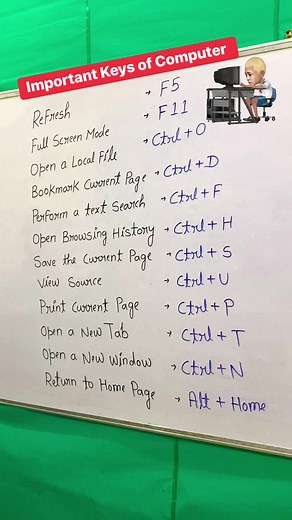 Important Keys of Computer
Refresh → F5
Full Screen Mode → F11
Open a Local File → Ctrl + O
Bookmark Current Page → Ctrl + D
Perform a text Search → Ctrl + F
Open Browsing History → Ctrl + H
Save the Current Page → Ctrl + S
View Source → Ctrl + U
Print Current Page → Ctrl + P
Open a New Tab → Ctrl + T
Open a New Window → Ctrl + N
Return to Home Page → Alt + Home